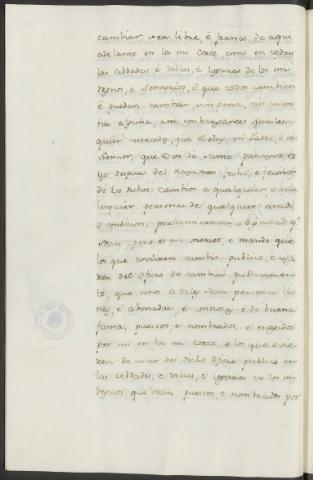 cambiar sea libre, é franco, de aqui
adelante en la mi Corte, como en todas
las cibdades, é villas, é logares de los mis
regnos, é Sennorios, é que todos cambien
é puedan cambiar, sin pena, sin calon
na alguna, non embargantes quales
quier mercedes, que el Rey mi Padre, é mi
Sennor, que Dios dé santo paraiso, et
yo despues del hayamos fecho, é fecimos
de los dichos cambios a qualquier o qua
lesquier personas de qualquier estado
o condicion, preheminencia, o dignidad qe
sean, pero es mi merced, e mando que
los que tovieren cambio publico, é usa
ren del oficio de cambiar publicamen
te, que estos a tales sean personas lla
nas, é abonadas, é contiosas, é de buena
fama, puestos, é nombrados, é escogidos
por mi en la mi Corte, é los que ovie
ren de usar del dicho oficio publico en
las cibdades, é villas, é logares de los mis
regnos, que sean puestos, e nombrados por